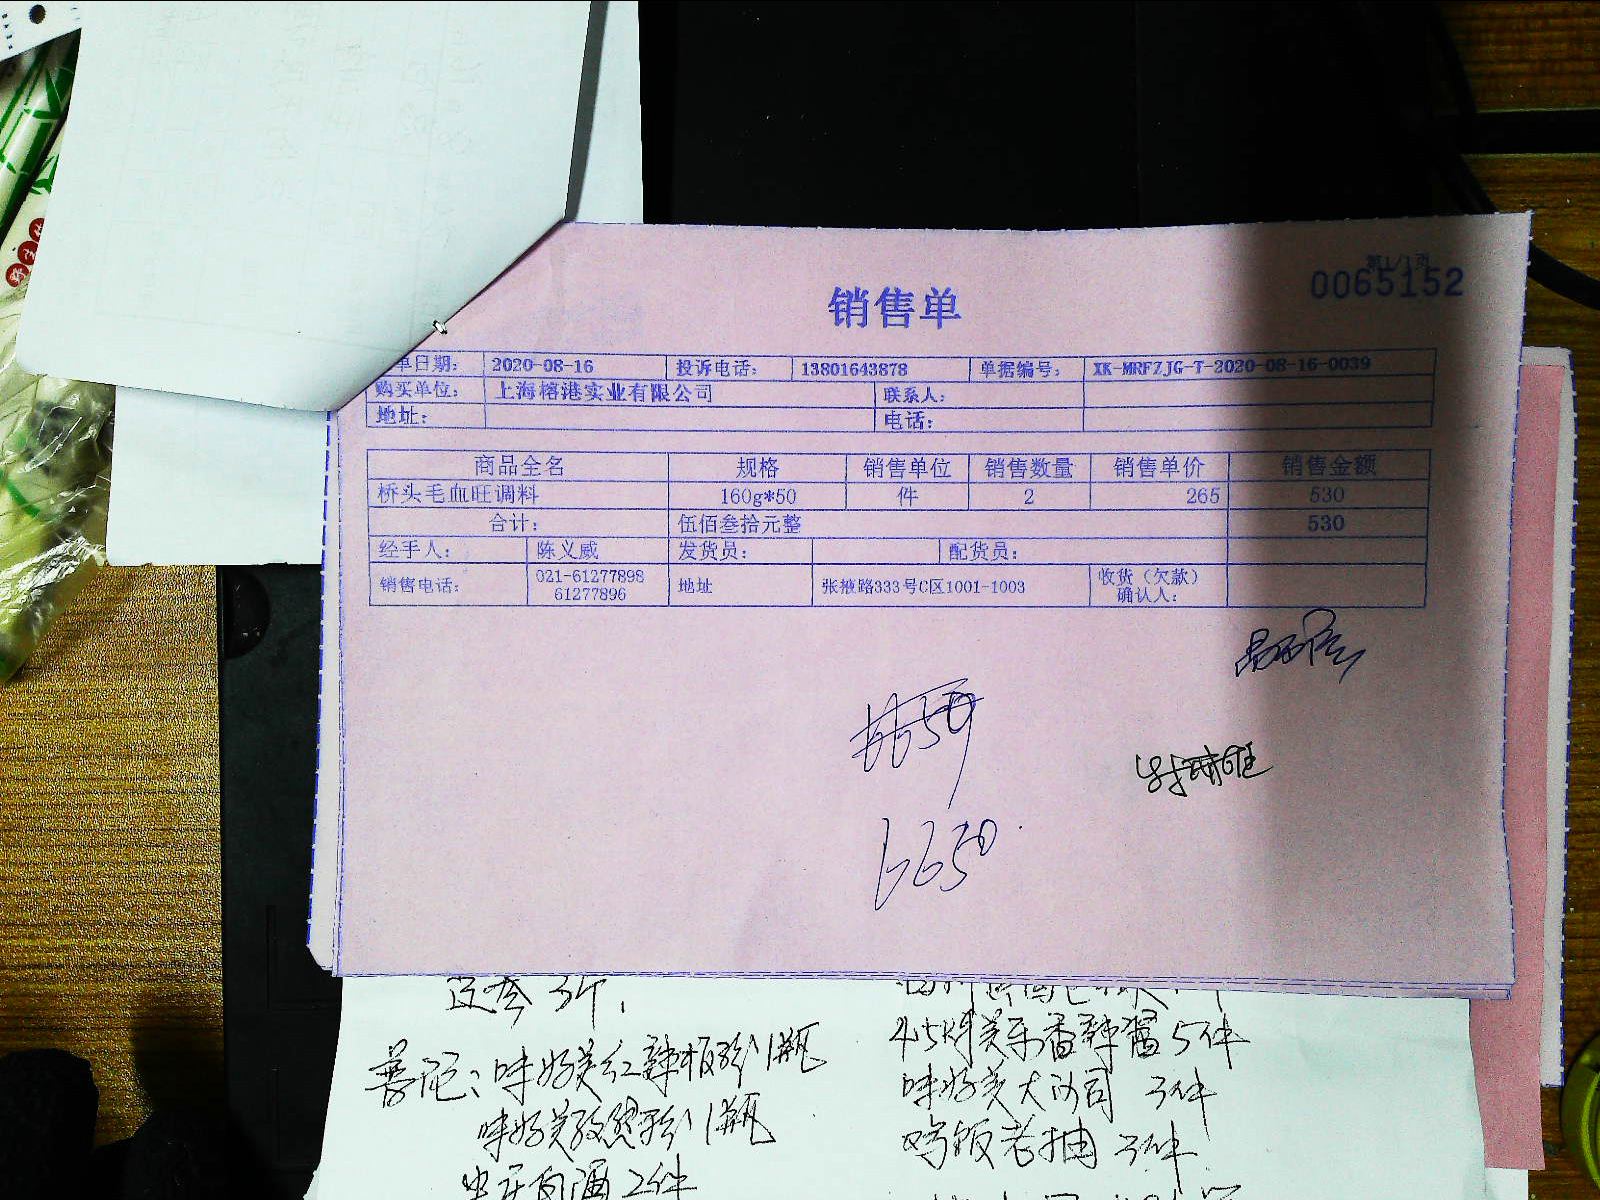 第1/1页
0065152
销售单
单日期： 2020-08-16 投诉电话： 13801643878 单据编号： XK-MRFZJG-T-2020-08-16-0039
购买单位： 上海榕港实业有限公司 联系人：
地址： 电话：
商品全名 规格 销售单位 销售数量 销售单价 销售金额
桥头毛血旺调料 160g*50 件 2 265 530
合计： 伍佰叁拾元整 530
经手人： 陈义威 发货员： 配货员：
销售电话： 021-61277898 61277896 地址 张掖路333号C区1001-1003 收货（欠款）确认人：
6650
3件
普陀：味好美红辣椒粉1瓶
味好美孜然粉1瓶
白酒2件
4.5kg美乐香辣酱5件
味好美大沙司 3件
老抽 3件